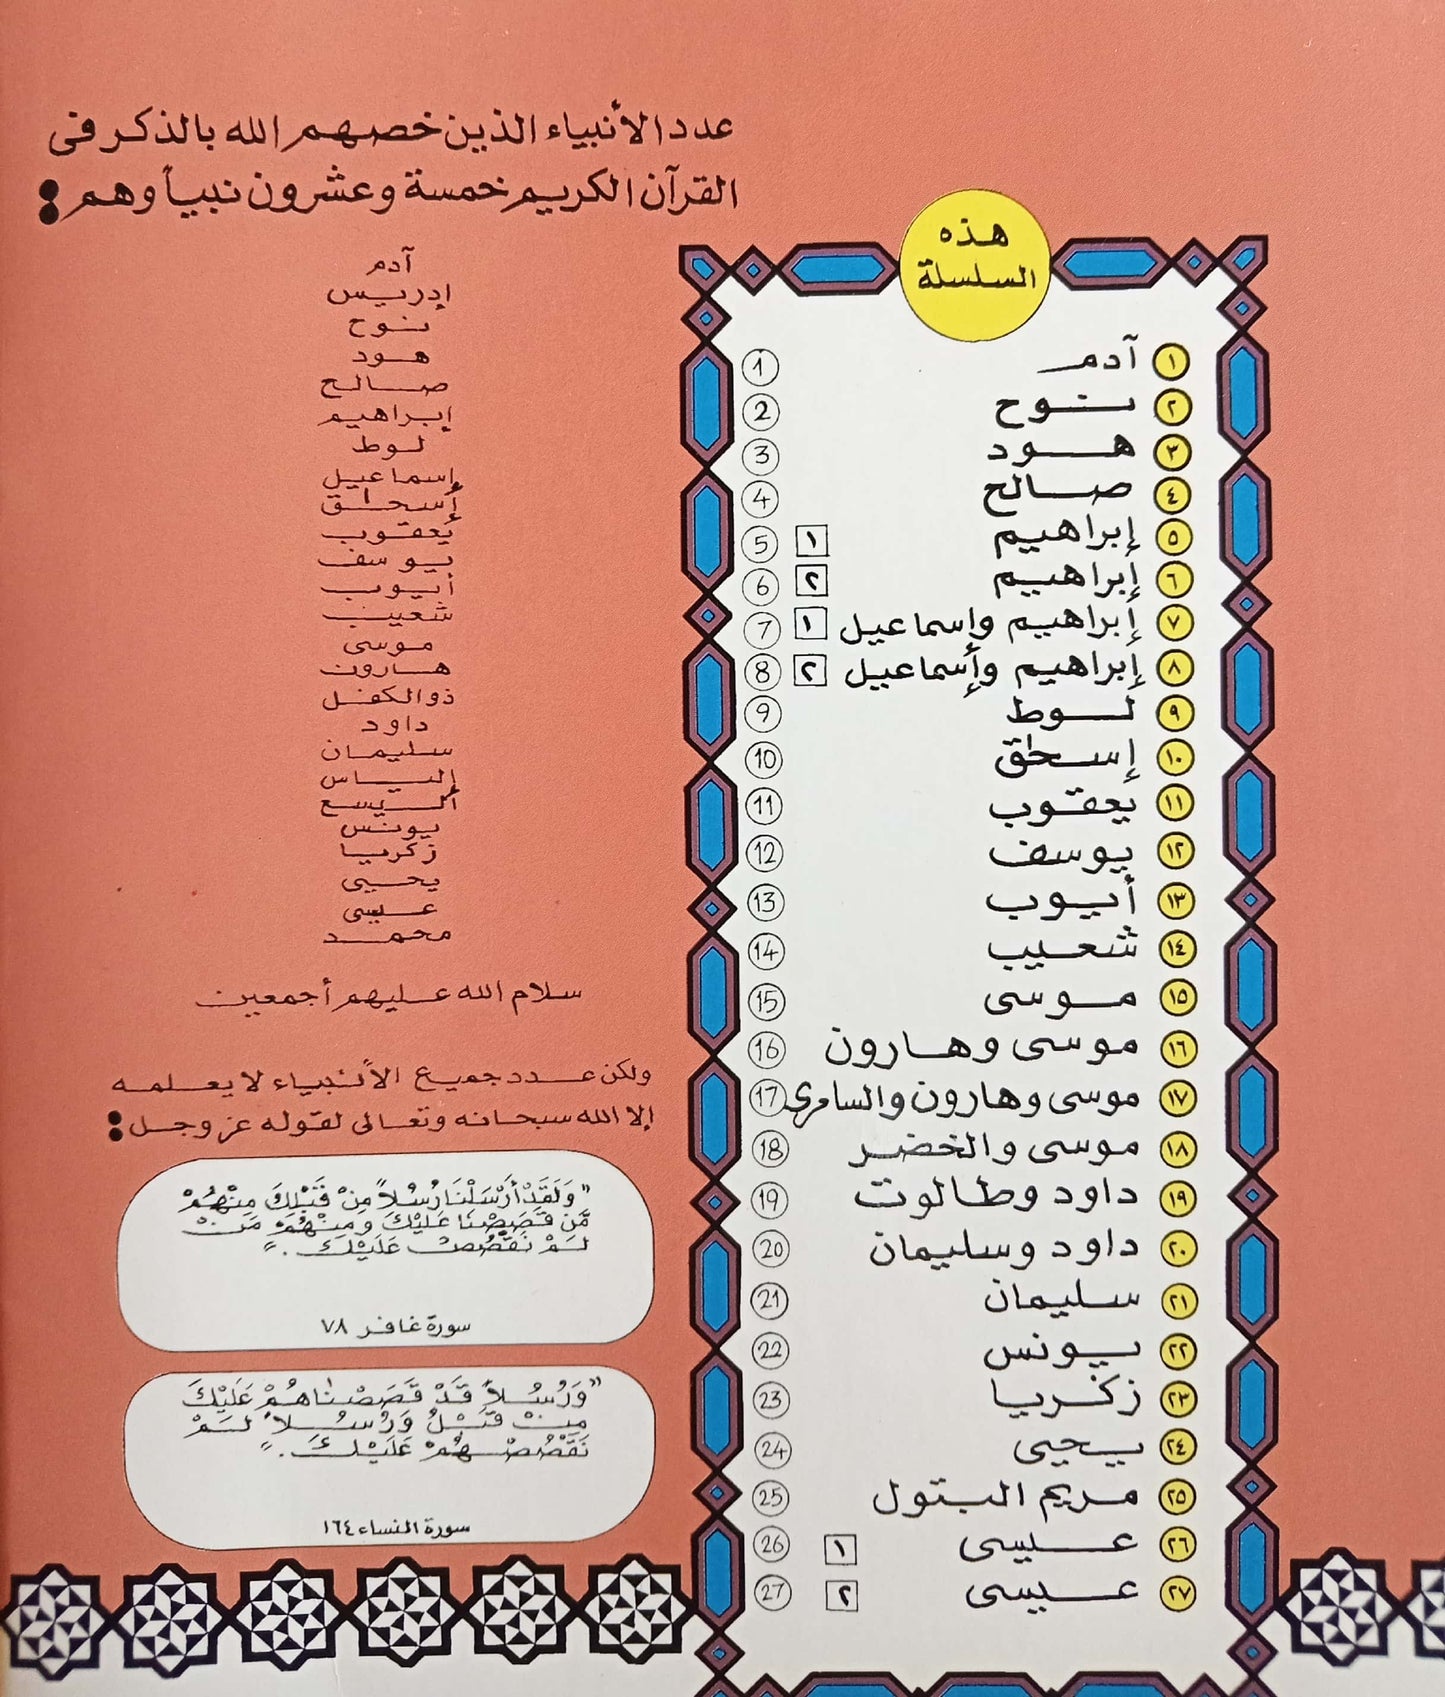 عدد الأنبياء الذين خصهم الله بالذكر فى
القرآن الكريم خمسة وعشرون نبياً وهم:
آدم
إدريس
نوح
هود
صالح
إبراهيم
لوط
إسماعيل
إسحاق
يعقوب
يوسف
أيوب
شعيب
موسى
هارون
ذو الكفل
داود
سليمان
إلياس
أليسع
يونس
زكريا
يحيى
عيسى
محمد
سلام الله عليهم أجمعين
ولكن عدد جميع الأنبياء لا يعلمه
إلا الله سبحانه وتعالى لقوله عز وجل:
"وَلَقَدْ أَرْسَلْنَا رُسُلاً مِنْ قَبْلِكَ مِنْهُمْ
مَّن قَصَصْنَا عَلَيْكَ وَمِنْهُمْ مَنْ
لَمْ نَقْصُصْ عَلَيْكَ."
سورة غافر ٧٨
"وَرُسُلاً قَدْ قَصَصْنَاهُمْ عَلَيْكَ
مِنْ قَبْلُ وَرُسُلاً لَمْ
نَقْصُصْهُمْ عَلَيْكَ."
سورة النساء ١٦٤
هذه
السلسلة
١ آدم 1
٢ نوح 2
٣ هود 3
٤ صالح 4
٥ إبراهيم ١ 5
٦ إبراهيم ٢ 6
٧ إبراهيم وإسماعيل ١ 7
٨ إبراهيم وإسماعيل ٢ 8
٩ لوط 9
١٠ إسحٰق 10
١١ يعقوب 11
١٢ يوسف 12
١٣ أيوب 13
١٤ شعيب 14
١٥ موسى 15
١٦ موسى وهارون 16
١٧ موسى وهارون والسامرى 17
١٨ موسى والخضر 18
١٩ داود وطالوت 19
٢٠ داود وسليمان 20
٢١ سليمان 21
٢٢ يونس 22
٢٣ زكريا 23
٢٤ يحيى 24
٢٥ مريم البتول 25
٢٦ عيسى ١ 26
٢٧ عيسى ٢ 27